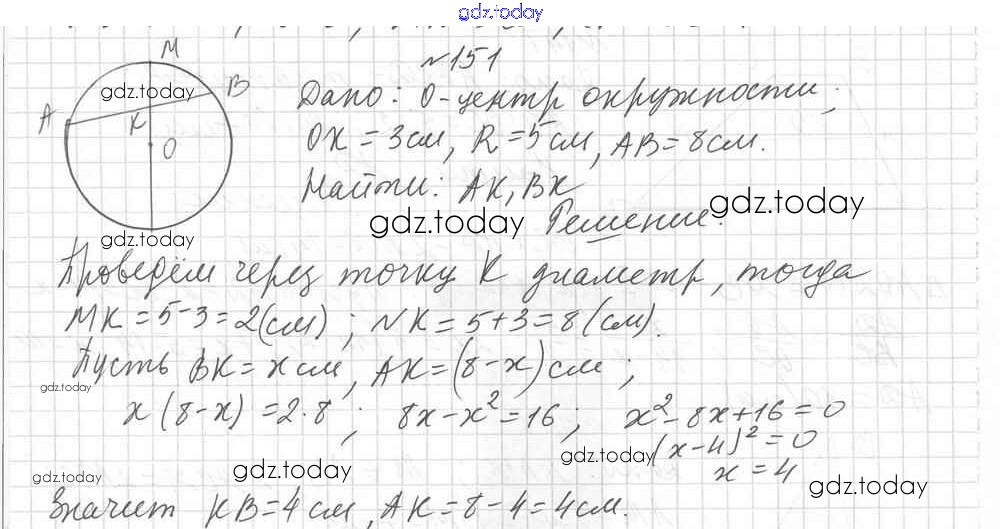 gdz.today
№151
M
gdz.today
B
A
K
O
Дано: O-центр окружности;
OK = 3см, R = 5см, AB = 8см.
Найти: AK, BK
gdz.today
gdz.today
gdz.today
Решение:
Проведём через точку K диаметр, тогда
MK = 5-3 = 2(см) ; NK = 5+3 = 8(см).
Пусть BK = x см, AK = (8-x) см ;
gdz.today
x(8-x) = 2·8 ; 8x-x² = 16 ; x²-8x+16 = 0
(x-4)² = 0
gdz.today
x = 4
gdz.today
gdz.today
gdz.today
Значит KB = 4 см, AK = 8-4 = 4см.